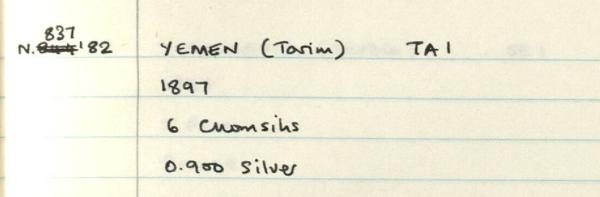 837
N. '82 YEMEN (Tarim) TA1
1897
6 Chomsihs
0.900 Silver